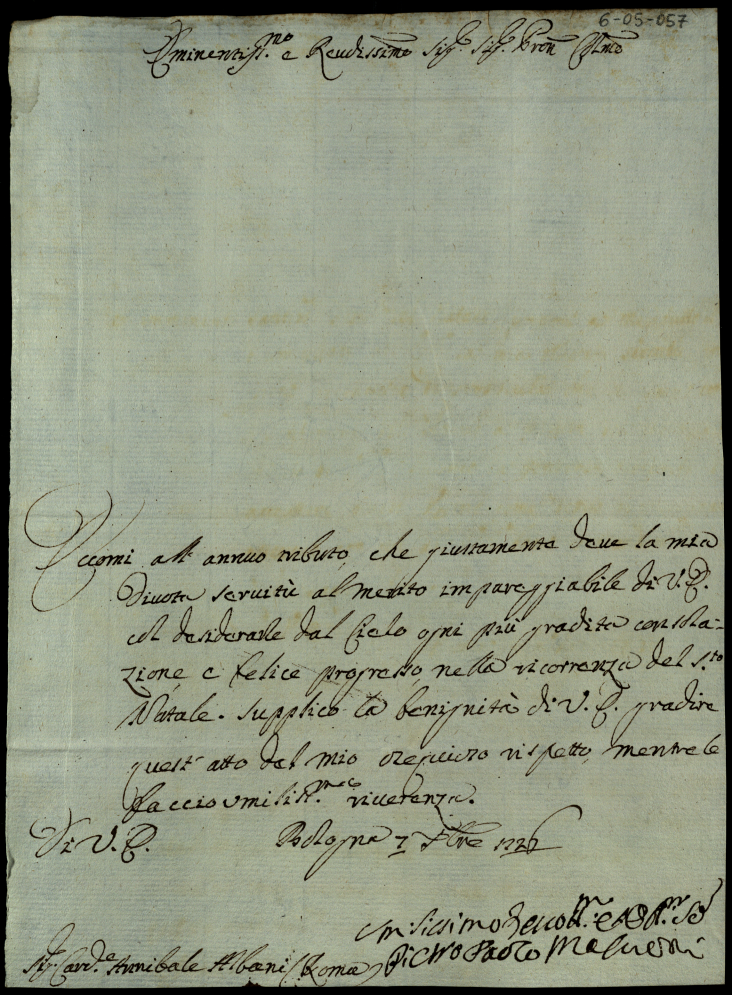 6-05-057
Eminentiss.mo e Reudissimo Sig.r Sig.r Pron
Eccomi all' annuo tributo, che giustamente deve la mia
divota servitù al merito impareggiabile di V. E.
col desiderarle dal Cielo ogni più gradita consola-
zione, e felice progresso nella ricorrenza del S.to
Natale. Supplico la benignità di V. E. gradire
quest' atto del mio ossequioso rispetto, mentre le
faccio umiliss.me riverenza.
Di V. E. Bologna 7
Sig.r Card.e Annibale Albani (Roma)
Pietro Paolo